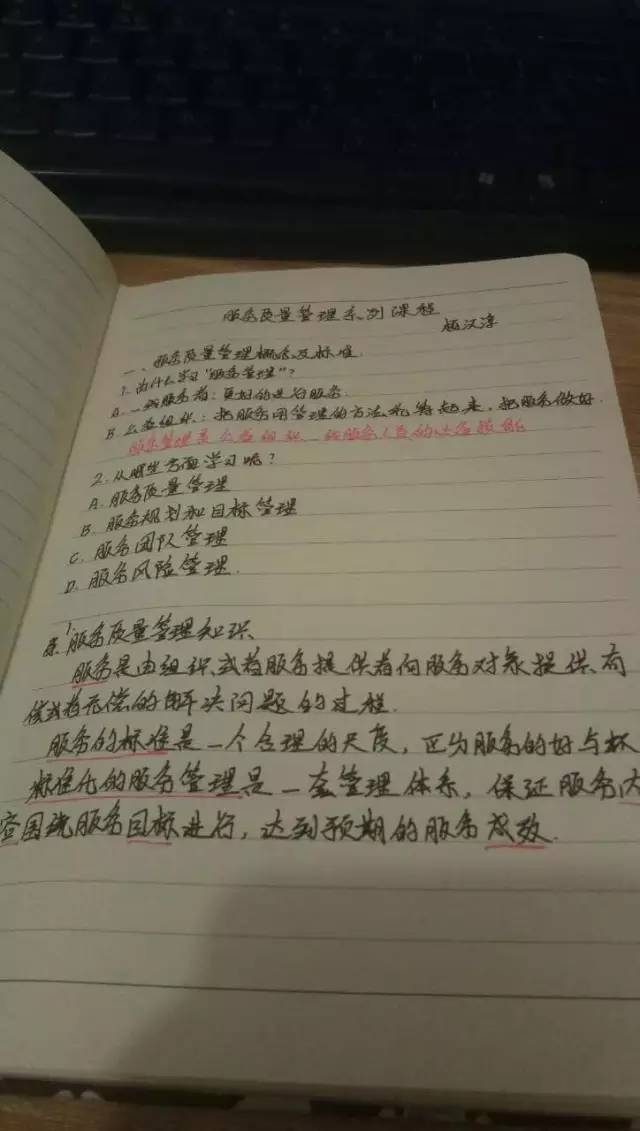 服务质量管理系列课程
杨汉淳
一、服务质量管理概念及标准.
1. 为什么学习“服务管理”?
A. 一线服务者:更好的进行服务.
B. 公益组织:把服务用管理的方法和 起来,把服务做好.
服务管理是公益组织、一线服务人员的必备技能
2. 从哪些方面学习呢?
A. 服务质量管理
B. 服务规划和目标管理
C. 服务团队管理
D. 服务风险管理.
1.
服务质量管理知识、
服务是由组织或者服务提供者向服务对象提供有
偿或者无偿的解决问题的过程.
服务的标准是一个合理的尺度, 服务的好与坏
标准化的服务管理是一套管理体系,保证服务内
容围绕服务目标进行,达到预期的服务成效.